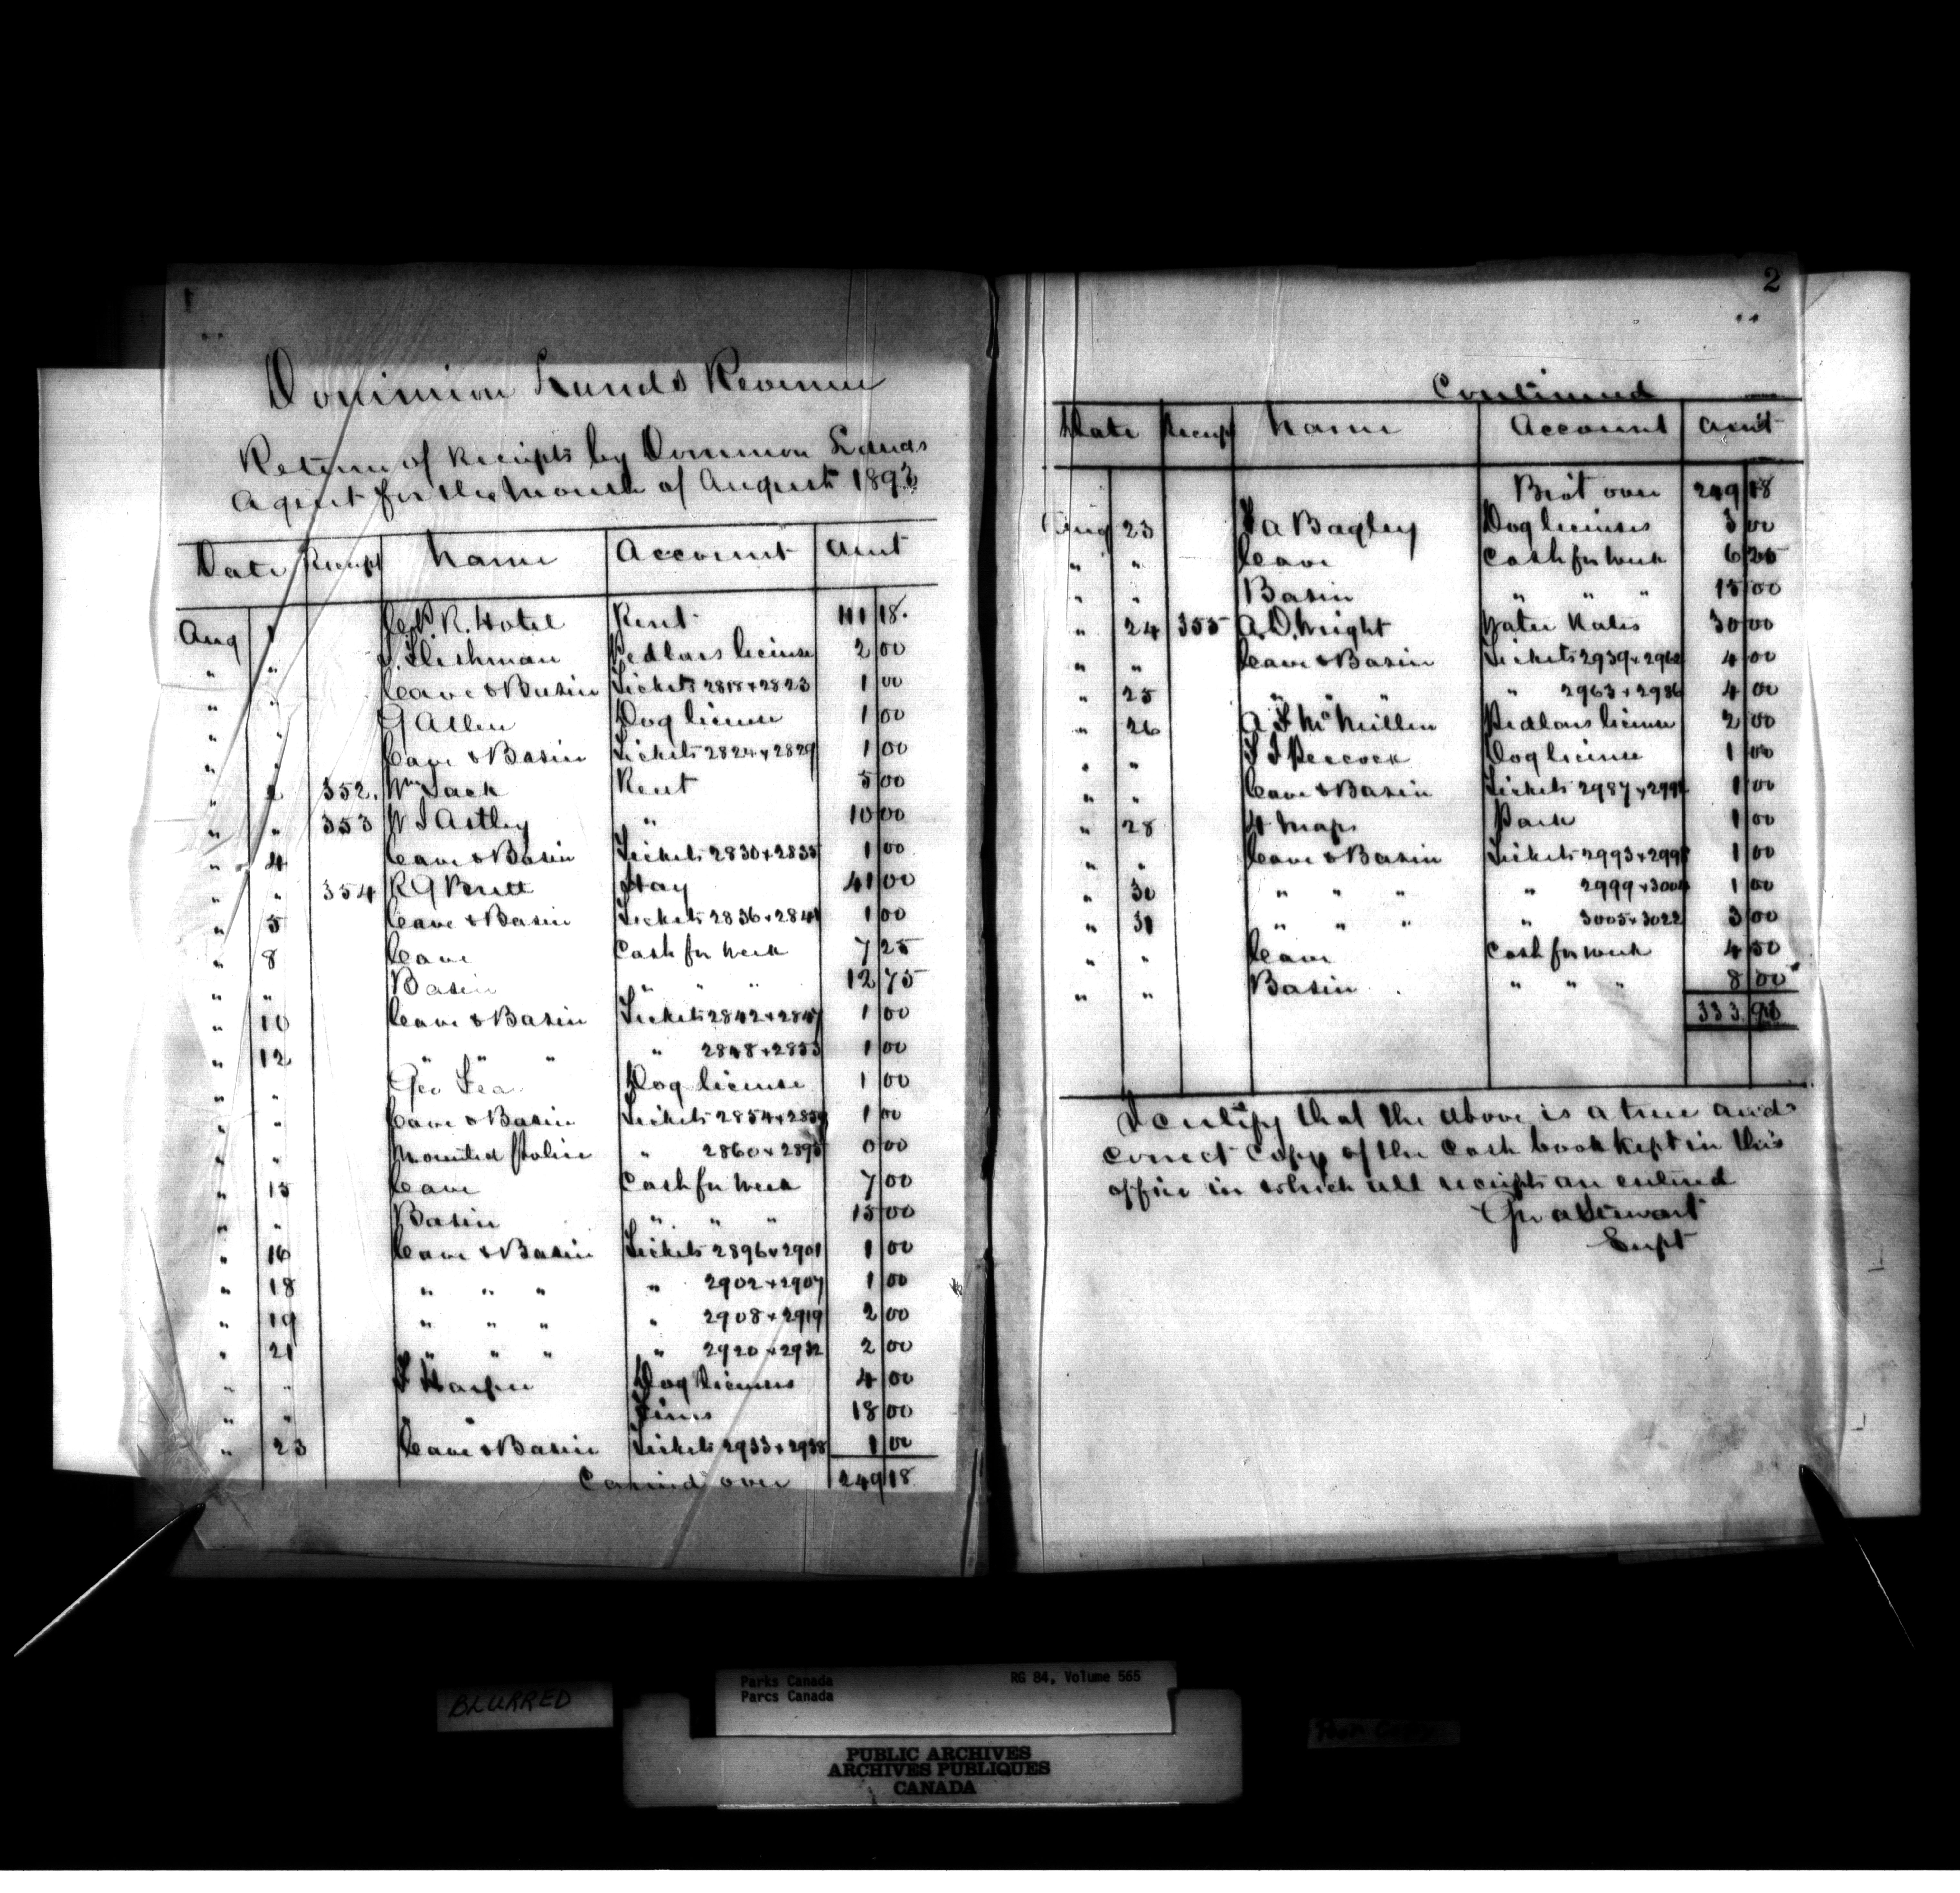 1
Dominion Lands Revenue
Return of Receipts by Dominion Lands
Agent for the Month of August 1893
Date Receipt Name Account Amt
Aug 1 C.P.R. Hotel Rent 111 18
" " Fleishman Pedlars license 2 00
" " Cave & Basin Tickets 2818 + 2823 1 00
" " G Allen Dog license 1 00
" " Cave & Basin Tickets 2824 + 2829 1 00
" 2 352. Wm Jack Rent 5 00
" " 353 W S Astley " 10 00
" 4 Cave & Basin Tickets 2830 + 2835 1 00
" " 354 R G Brett Hay 41 00
" 5 Cave & Basin Tickets 2836 + 2841 1 00
" 8 Cave Cash for week 7 25
" " Basin " " " 12 75
" 10 Cave & Basin Tickets 2842 + 2847 1 00
" 12 " " " " 2848 + 2853 1 00
" " Geo Fea Dog license 1 00
" " Cave & Basin Tickets 2854 + 2859 1 00
" " Mounted Police " 2860 + 2895 0 00
" 15 Cave Cash for week 7 00
" " Basin " " " 15 00
" 16 Cave & Basin Tickets 2896 + 2901 1 00
" 18 " " " " 2902 + 2907 1 00
" 19 " " " " 2908 + 2919 2 00
" 21 " " " " 2920 + 2932 2 00
" " Harper Dog licenses 4 00
" " " Fines 18 00
" 23 Cave & Basin Tickets 2933 + 2938 1 00
Carried over 249 18
2
Continued
Date Receipt Name Account Amt
Brot over 249 18
Aug 23 Bagley Dog licenses 3 00
" " Cave Cash for week 6 25
" " Basin " " " 15 00
" 24 355 A.D. Wright Water Rates 30 00
" " Cave & Basin Tickets 2939 + 2962 4 00
" 25 " " " " 2963 + 2986 4 00
" 26 McMillen Pedlars license 2 00
" " Peecock Dog license 1 00
" " Cave & Basin Tickets 2987 + 2992 1 00
" 28 4 Maps Park 1 00
" " Cave & Basin Tickets 2993 + 2998 1 00
" 30 " " " " 2999 + 3004 1 00
" 31 " " " " 3005 + 3022 3 00
" " Cave Cash for week 4 50
" " Basin " " " 8 00
333 93
I certify that the above is a true and
correct copy of the Cash book kept in this
office in which all receipts are entered
Geo A Stewart
Supt
BLURRED
Parks Canada RG 84, Volume 565
Parcs Canada
PUBLIC ARCHIVES
ARCHIVES PUBLIQUES
CANADA